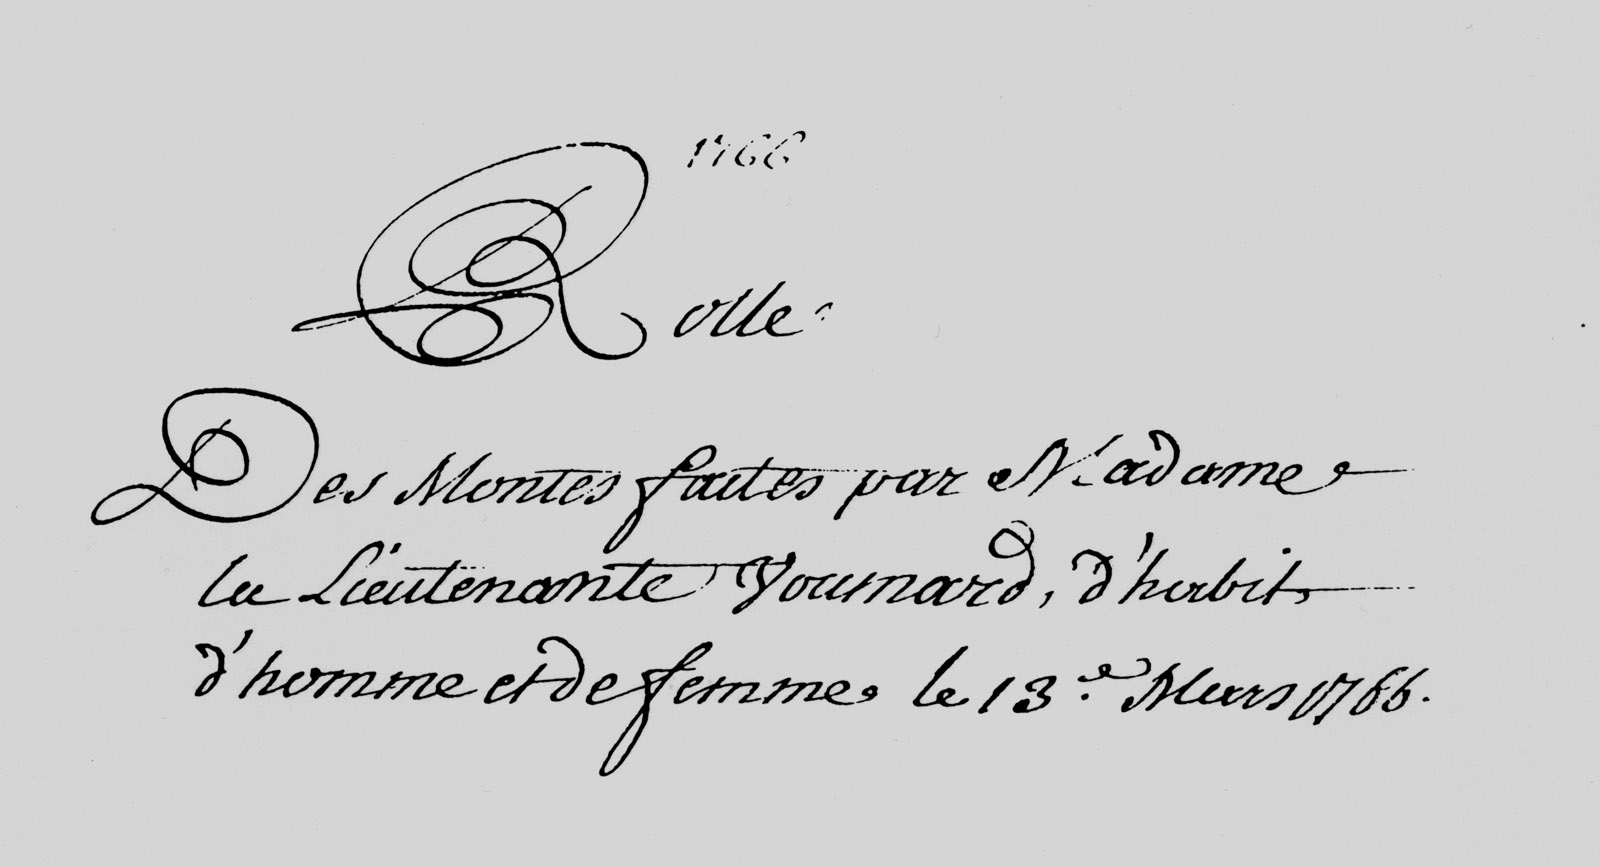 1766
Rolle
Des Montes faites par Madame
la Lieutenante Vournard, d'habit
d'homme et de femme le 13.e Mars 1766.